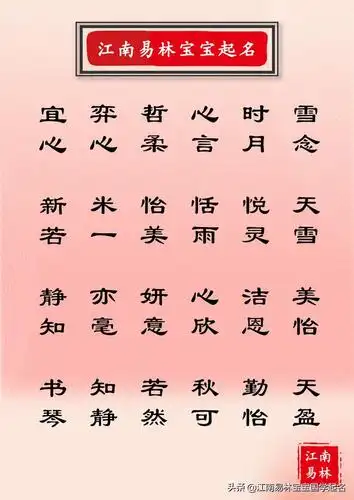 江南易林宝宝起名
宜 弈 哲 心 时 雪
心 心 柔 言 月 念
新 米 怡 恬 悦 天
若 一 美 雨 灵 雪
静 亦 妍 心 洁 美
知 毫 意 欣 恩 怡
书 知 若 秋 勤 天
琴 静 然 可 怡 盈
江南
易林
头条 @江南易林宝宝国学起名